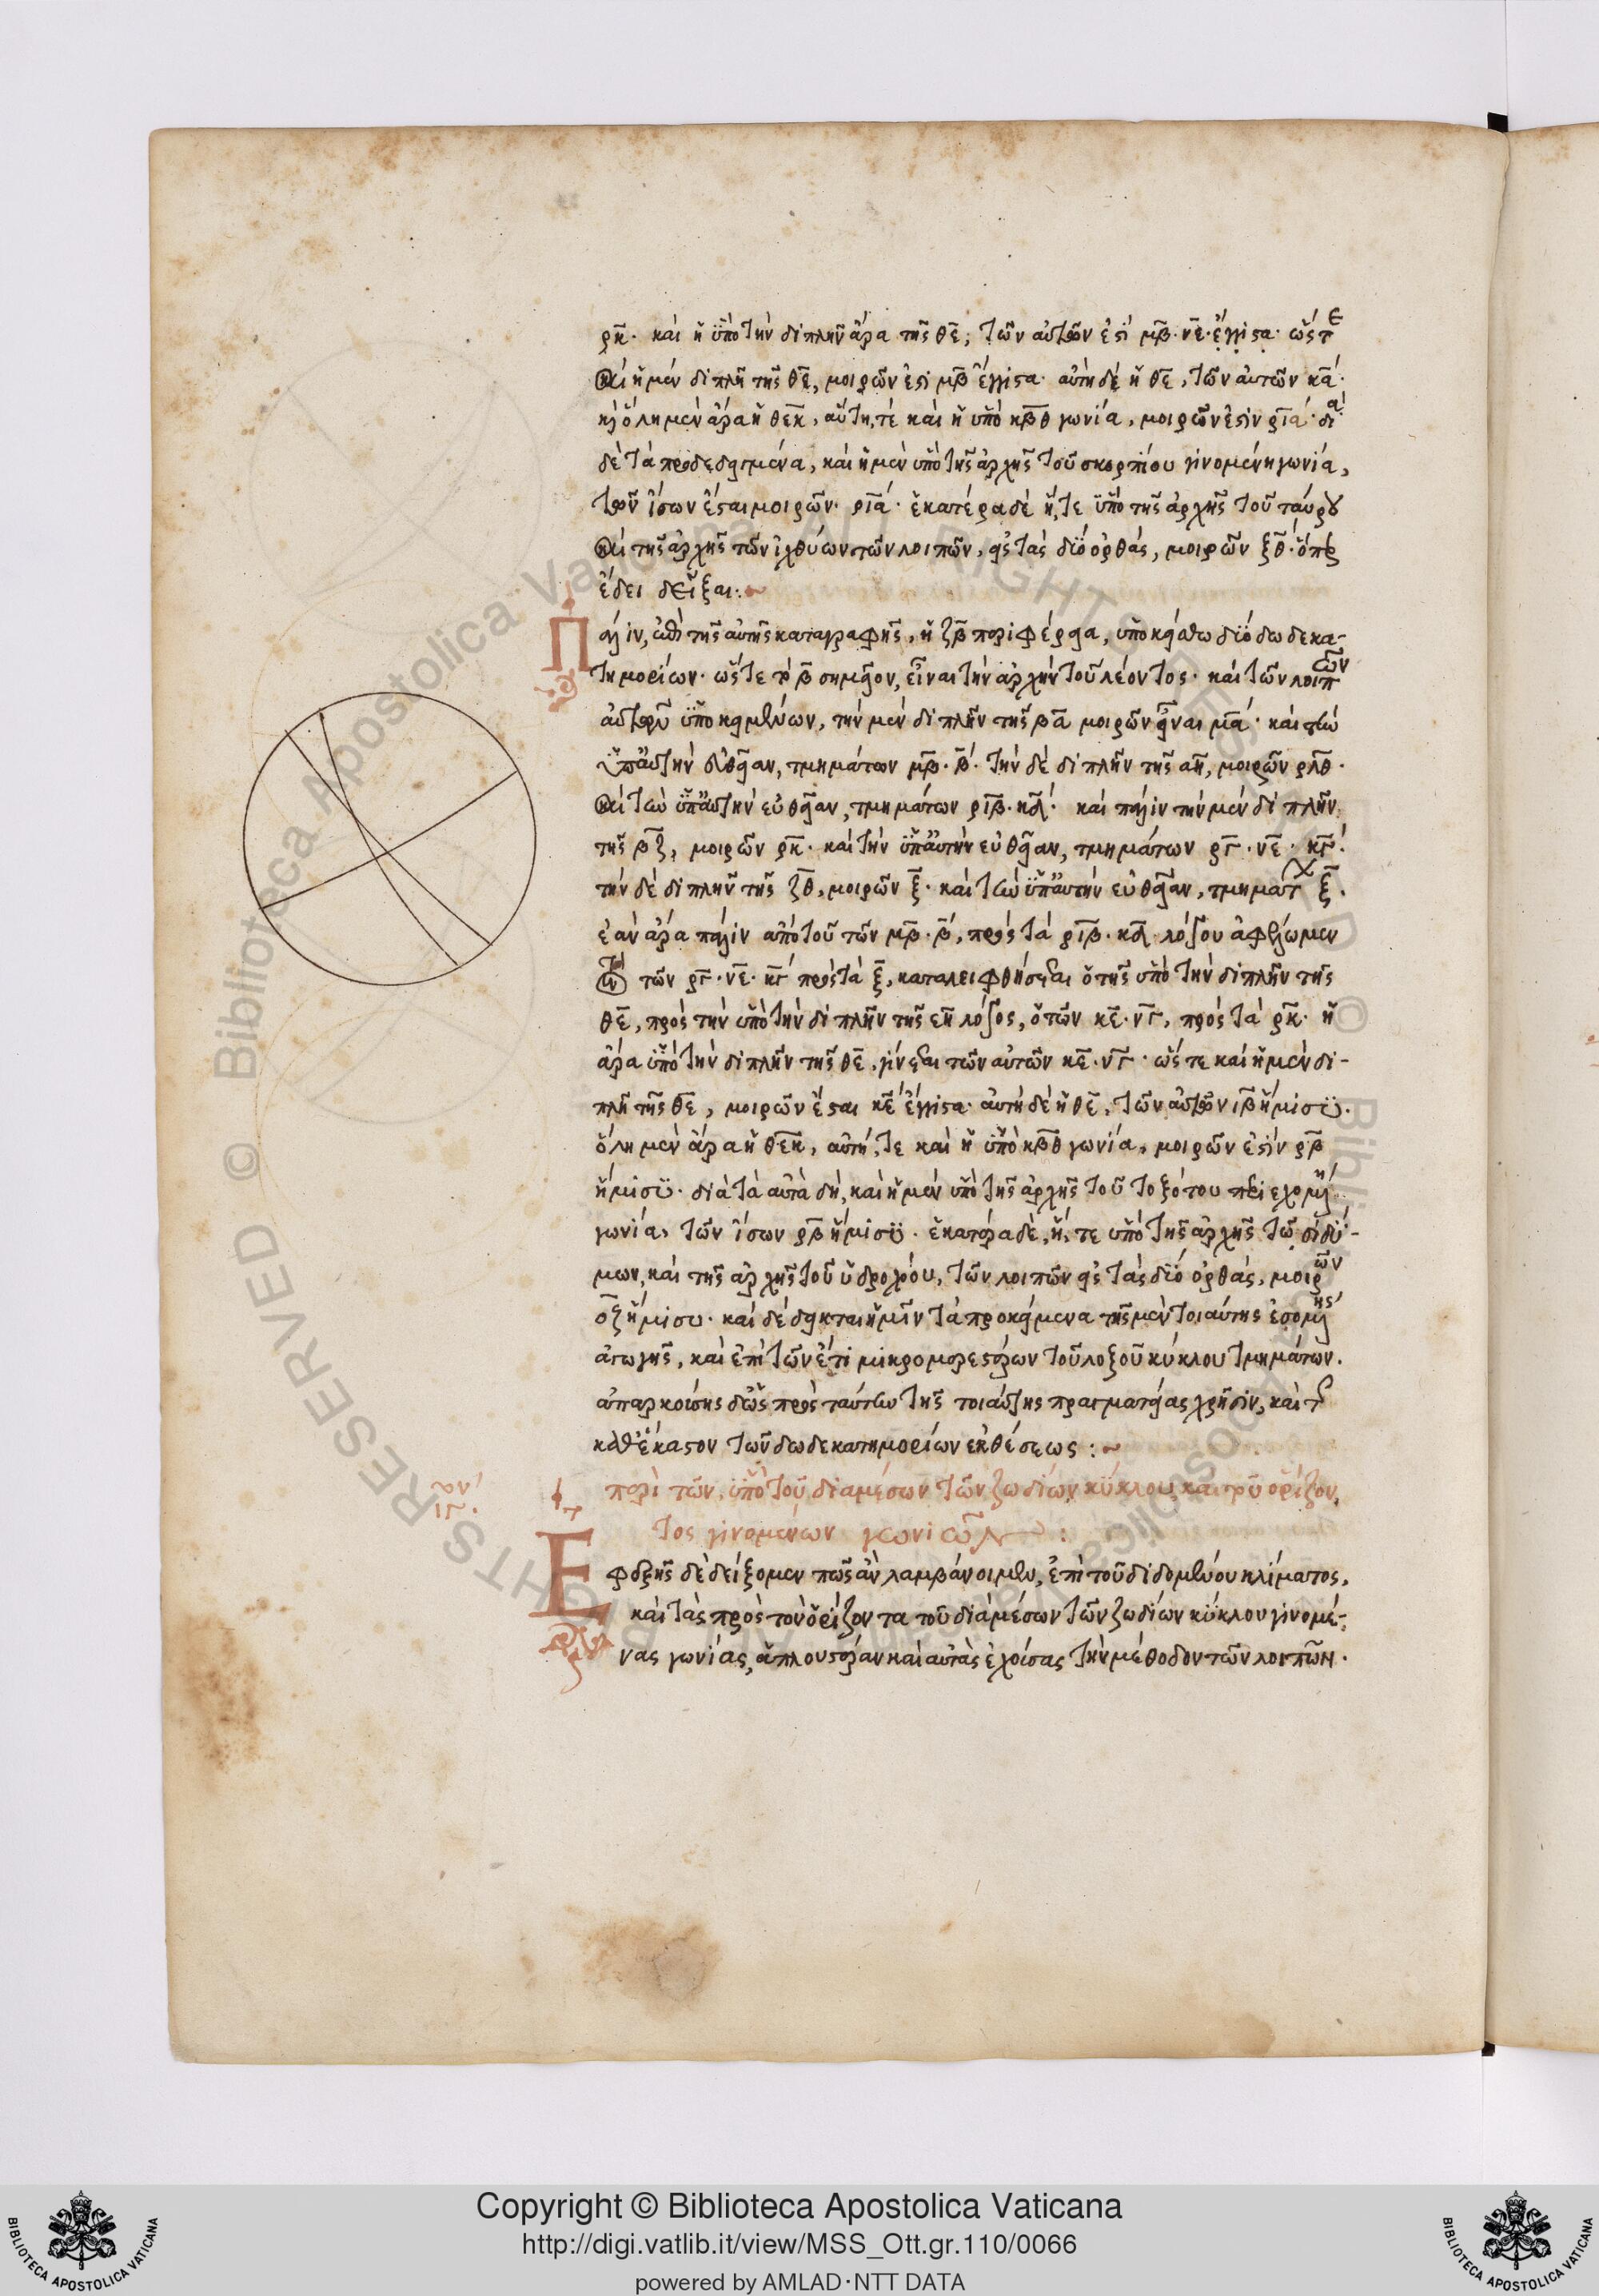 ρκ̅. καὶ ἡ ὑπὸ τὴν διπλῆν ἄρα τῆς θε̅, τῶν αὐτῶν ἐστὶ μβ̅. νε̅. ἔγγιστα. ὥστε
καὶ ἡ μὲν διπλῆ τῆς θε̅, μοιρῶν ἐστι μβ̅ ἔγγιστα. αὐτὴ δὲ ἡ θε̅, τῶν αὐτῶν κα̅.
κ, ὅλη μὲν ἄρα ἡ θεκ̅, αὕτη, τὲ καὶ ἡ ὑπὸ κβθ̅ γωνία, μοιρῶν ἐστὶν ρια̅. διὰ
δὲ τὰ προδεδειγμένα, καὶ ἡ μὲν ὑπὸ τῆς ἀρχῆς τοῦ σκορπίου γινομένη γωνία,
τῶν ἴσων ἔσται μοιρῶν. ρια̅. ἑκατέρα δὲ ἥ, τε ὑπὸ τῆς ἀρχῆς τοῦ ταύρου
καὶ τῆς ἀρχῆς τῶν ἰχθύων τῶν λοιπῶν, εἰς τὰς δύο ὀρθὰς, μοιρῶν ξθ̅. ὅπερ
ἔδει δεῖξαι:~
Πάλιν, ἐπὶ τῆς αὐτῆς καταγραφῆς, ἡ ζβ̅ περιφέρεια, ὑποκείσθω δύο δωδεκα-
τημορίων. ὥστε τὸ β̅ σημεῖον, εἶναι τὴν ἀρχὴν τοῦ λέοντος. καὶ τῶν λοιπῶν
αὐτῶν ὑποκειμένων, τὴν μὲν διπλῆν τῆς βα̅ μοιρῶν εἶναι μα̅. καὶ τὴν
ὑπ' αὐτὴν εὐθεῖαν, τμημάτων μβ̅. β̅. τὴν δὲ διπλῆν τῆς αη̅, μοιρῶν ρλθ̅.
καὶ τὴν ὑπ' αὐτὴν εὐθεῖαν, τμημάτων ριβ̅. κδ̅. καὶ πάλιν τὴν μὲν διπλῆν
τῆς βζ̅, μοιρῶν ρκ̅. καὶ τὴν ὑπ' αὐτὴν εὐθεῖαν, τμημάτων ργ̅. νε̅. κγ̅.
τὴν δὲ διπλῆν τῆς ζθ̅, μοιρῶν ξ̅. καὶ τὴν ὑπ' αὐτὴν εὐθεῖαν, τμημάτων ξ̅.
ἐὰν ἄρα πάλιν ἀπὸ τοῦ τῶν μβ̅. β̅, πρὸς τὰ ριβ̅. κδ̅ λόγου ἀφέλωμεν
τὸν τῶν ργ̅. νε̅. κγ̅ πρὸς τὰ ξ̅, καταλειφθήσεται ὁ τῆς ὑπὸ τὴν διπλῆν τῆς
θε̅, πρὸς τὴν ὑπὸ τὴν διπλῆν τῆς εη̅ λόγος, ὁ τῶν κε̅. νγ̅, πρὸς τὰ ρκ̅. ἡ
ἄρα ὑπὸ τὴν διπλῆν τῆς θε̅, γίνεται τῶν αὐτῶν κε̅. νγ̅. ὥστε καὶ ἡ μὲν δι-
πλῆ τῆς θε̅, μοιρῶν ἔσται κε̅ ἔγγιστα. αὐτὴ δὲ ἡ θε̅, τῶν αὐτῶν ιβ̅ ἥμισυ.
ὅλη μὲν ἄρα ἡ θεκ̅, αὐτή, τε καὶ ἡ ὑπὸ κβθ̅ γωνία, μοιρῶν ἐστὶν ρβ̅
ἥμισυ. διὰ τὰ αὐτὰ δὴ, καὶ ἡ μὲν ὑπὸ τῆς ἀρχῆς τοῦ τοξότου περιεχομένη
γωνία, τῶν ἴσων ρβ̅ ἥμισυ. ἑκατέρα δὲ, ἥ, τε ὑπὸ τῆς ἀρχῆς τῶν διδύ-
μων, καὶ τῆς ἀρχῆς τοῦ ὑδροχόου, τῶν λοιπῶν εἰς τὰς δύο ὀρθὰς, μοιρῶν
οζ̅ ἥμισυ. καὶ δέδεικται ἡμῖν τὰ προκείμενα τῆς μὲν τοιαύτης ἐσομένης
ἀγωγῆς, καὶ ἐπὶ τῶν ἔτι μικρομερεστέρων τοῦ λοξοῦ κύκλου τμημάτων.
ἀπαρκούσης δ' ὡς πρὸς ταύτην τῆς τοιαύτης πραγματείας χρῆσιν, καὶ τῆς
καθ' ἕκαστον τῶν δωδεκατημορίων ἐκθέσεως:~
περὶ τῶν, ὑπὸ τοῦ διαμέσων τῶν ζωδίων κύκλου, καὶ τοῦ ὁρίζον,
τος γινομένων γωνιῶν:
Ἐφεξῆς δὲ δείξομεν πῶς ἂν λαμβάνοιμεν, ἐπὶ τοῦ διδομένου κλίματος,
καὶ τὰς πρὸς τὸν ὁρίζοντα τοῦ διὰ μέσων τῶν ζωδίων κύκλου γινομέ-
νας γωνίας, ἁπλουστέραν καὶ αὐτὰς ἐχούσας τὴν μέθοδον τῶν λοιπῶν.
Copyright © Biblioteca Apostolica Vaticana
http://digi.vatlib.it/view/MSS_Ott.gr.110/0066
powered by AMLAD·NTT DATA
BIBLIOTECA APOSTOLICA VATICANA
BIBLIOTECA APOSTOLICA VATICANA